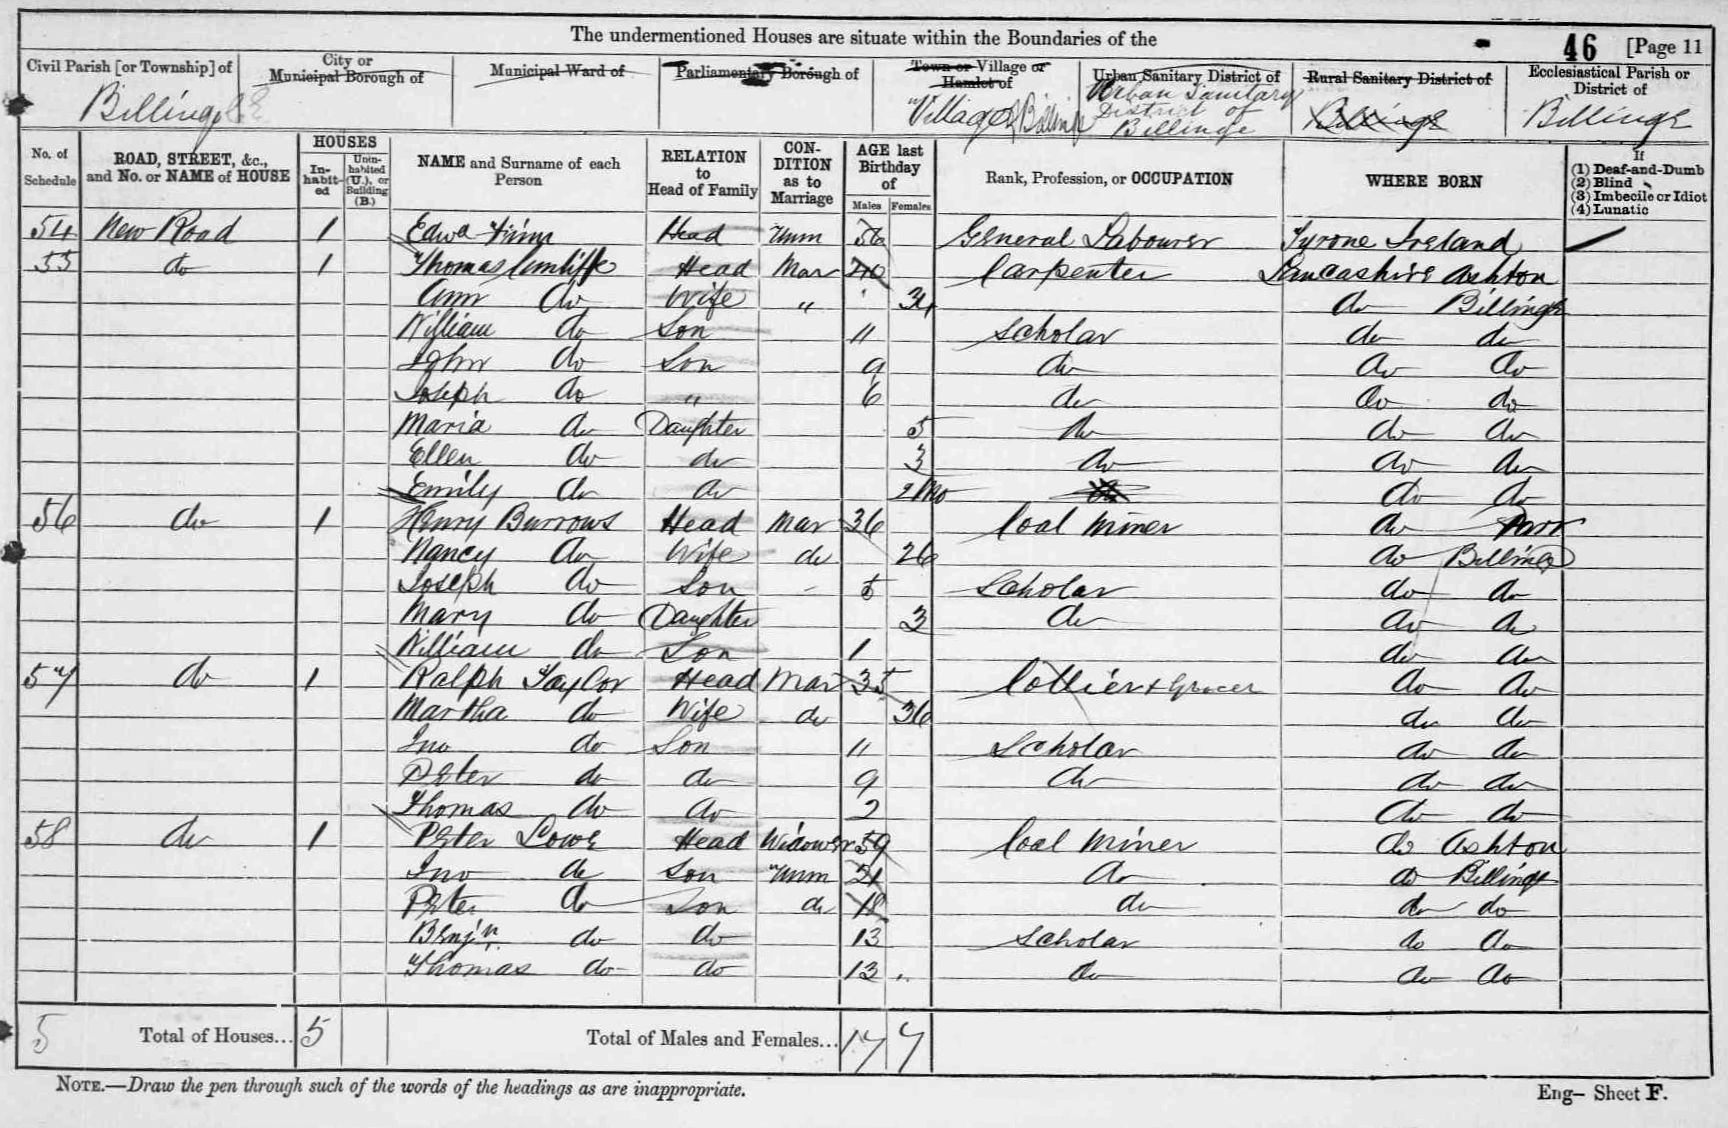 The undermentioned Houses are situate within the Boundaries of the
46 [Page 11
Civil Parish [or Township] of
City or Municipal Borough of
Municipal Ward of
Parliamentary Borough of
Town or Village or Hamlet of
Urban Sanitary District of
Rural Sanitary District of
Ecclesiastical Parish or District of
Billinge
Village of Billinge
Urban Sanitary District of Billinge
Billinge
Billinge
No. of Schedule
ROAD, STREET, &c., and No. or NAME of HOUSE
HOUSES
In-habit-ed
Unin-habited (U.), or Building (B.)
NAME and Surname of each Person
RELATION to Head of Family
CON-DITION as to Marriage
AGE last Birthday of
Males Females
Rank, Profession, or OCCUPATION
WHERE BORN
If (1) Deaf-and-Dumb (2) Blind (3) Imbecile or Idiot (4) Lunatic
54 New Road 1 Edwd Head Unm 56 General Labourer Tyrone Ireland
55 do 1 Thomas Cunliffe Head Mar Carpenter Lancashire Ashton
Ann do Wife " 34 do Billinge
William do Son 11 Scholar do do
John do Son 9 do do do
Joseph do " 6 do do do
Maria do Daughter 5 do do do
Ellen do do 3 do do do
Emily do do 2 Mo do do do
56 do 1 Henry Burrows Head Mar 36 Coal Miner do Parr
Nancy do Wife do 26 do Billinge
Joseph do Son - 5 Scholar do do
Mary do Daughter 3 do do do
William do Son 1 do do
57 do 1 Ralph Taylor Head Mar 35 Collier & Grocer do do
Martha do Wife do 36 do do
Jno do Son 11 Scholar do do
Peter do do 9 do do do
Thomas do do 2 do do
58 do 1 Peter Lowe Head Widower 59 Coal Miner do Ashton
Jno do Son Unm 21 do do Billinge
Peter do Son do 18 do do do
Benjn do do 13 Scholar do do
Thomas do do 13 do do do
5 Total of Houses... 5 Total of Males and Females... 17 7
NOTE.—Draw the pen through such of the words of the headings as are inappropriate.
Eng— Sheet F.